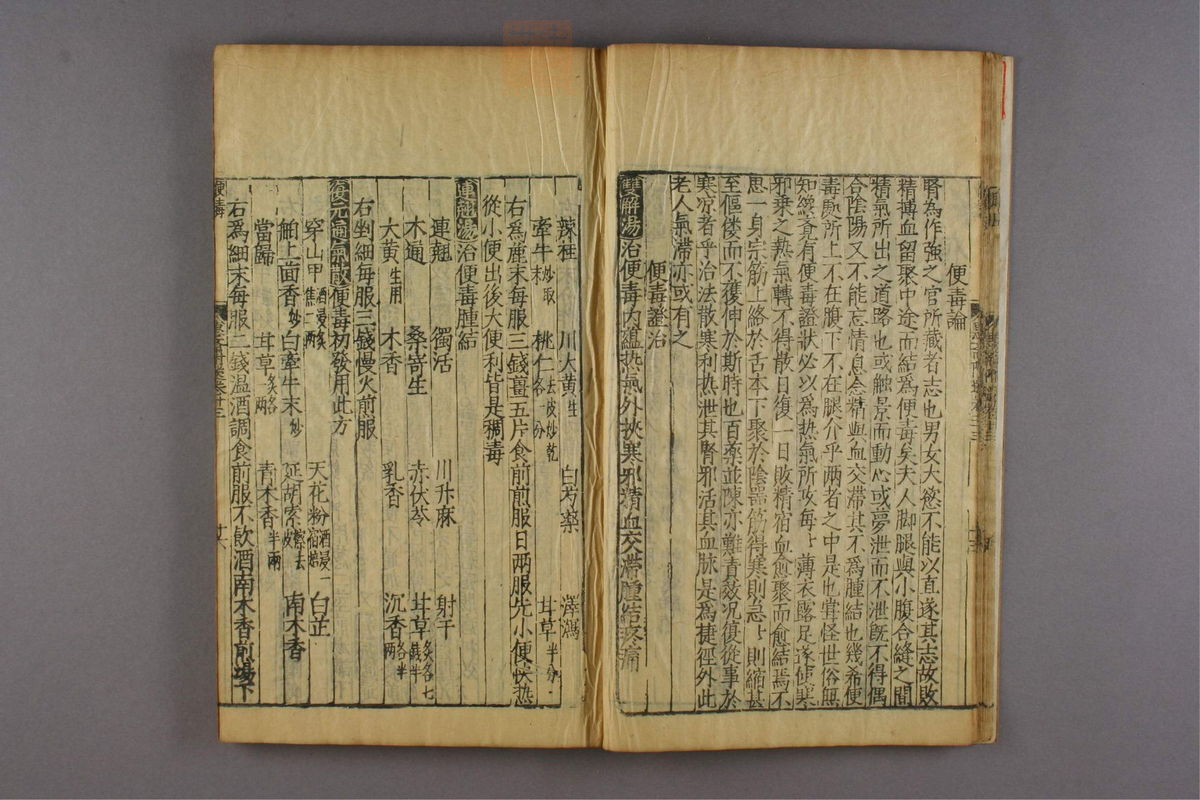 便毒論
腎為作強之官所藏者志也男女大慾不能以直遂其志故敗
精搏血留聚中途而結為便毒矣夫人脚腿與小腹合縫之間
精氣所出之道路也或觸景而動心或夢泄而不泄旣不得偶
合陰陽又不能忘情息念精與血交滯其不為腫結也幾希便
毒熋所上不在腹下不在腿介乎兩者之中是也嘗怪世俗無
知纔有便毒證狀必以為熱氣所攻每〻薄衣露足遂使寒
邪乗之熱氣轉不得散日復一日敗精宿血愈聚而愈結焉不
思一身宗筋上絡於舌本下聚於陰器筋得寒則急〻則縮甚
至傴僂而不獲伸於斯時也百藥並陳亦難責效况復從事於
寒凉者乎治法散寒利热泄其腎邪活其血脉是為捷徑外此
老人氣滯亦或有之
便毒證治
雙解湯治便毒内蘊热氣外挾寒邪精血交滯腫結疼痛
辣桂 川大黄生 白芍藥 澤瀉
牽牛炒取末 桃仁去皮炒乾各一分 甘草半分
右為麄末每服三錢薑五片食前煎服日两服先小便快热
從小便出後大便利皆是稠毒
連翹湯治便毒腫結
連翹 獨活 川升麻 射干
木通 桑寄生 赤伏苓 甘草炙各七錢半
大黄生用 木香 乳香 沉香各半两
右剉細每服三錢慢火煎服
復元通氣散便毒初發用此方
穿山甲酒浸炙焦二两 天花粉酒浸一宿焙 白芷
舶上茴香炒 白牽牛末炒 延胡索擦去皮 南木香
當歸 甘草炙各一两 青木香半两
右爲細末每服二錢温酒調食前服不飲酒南木香煎湯下